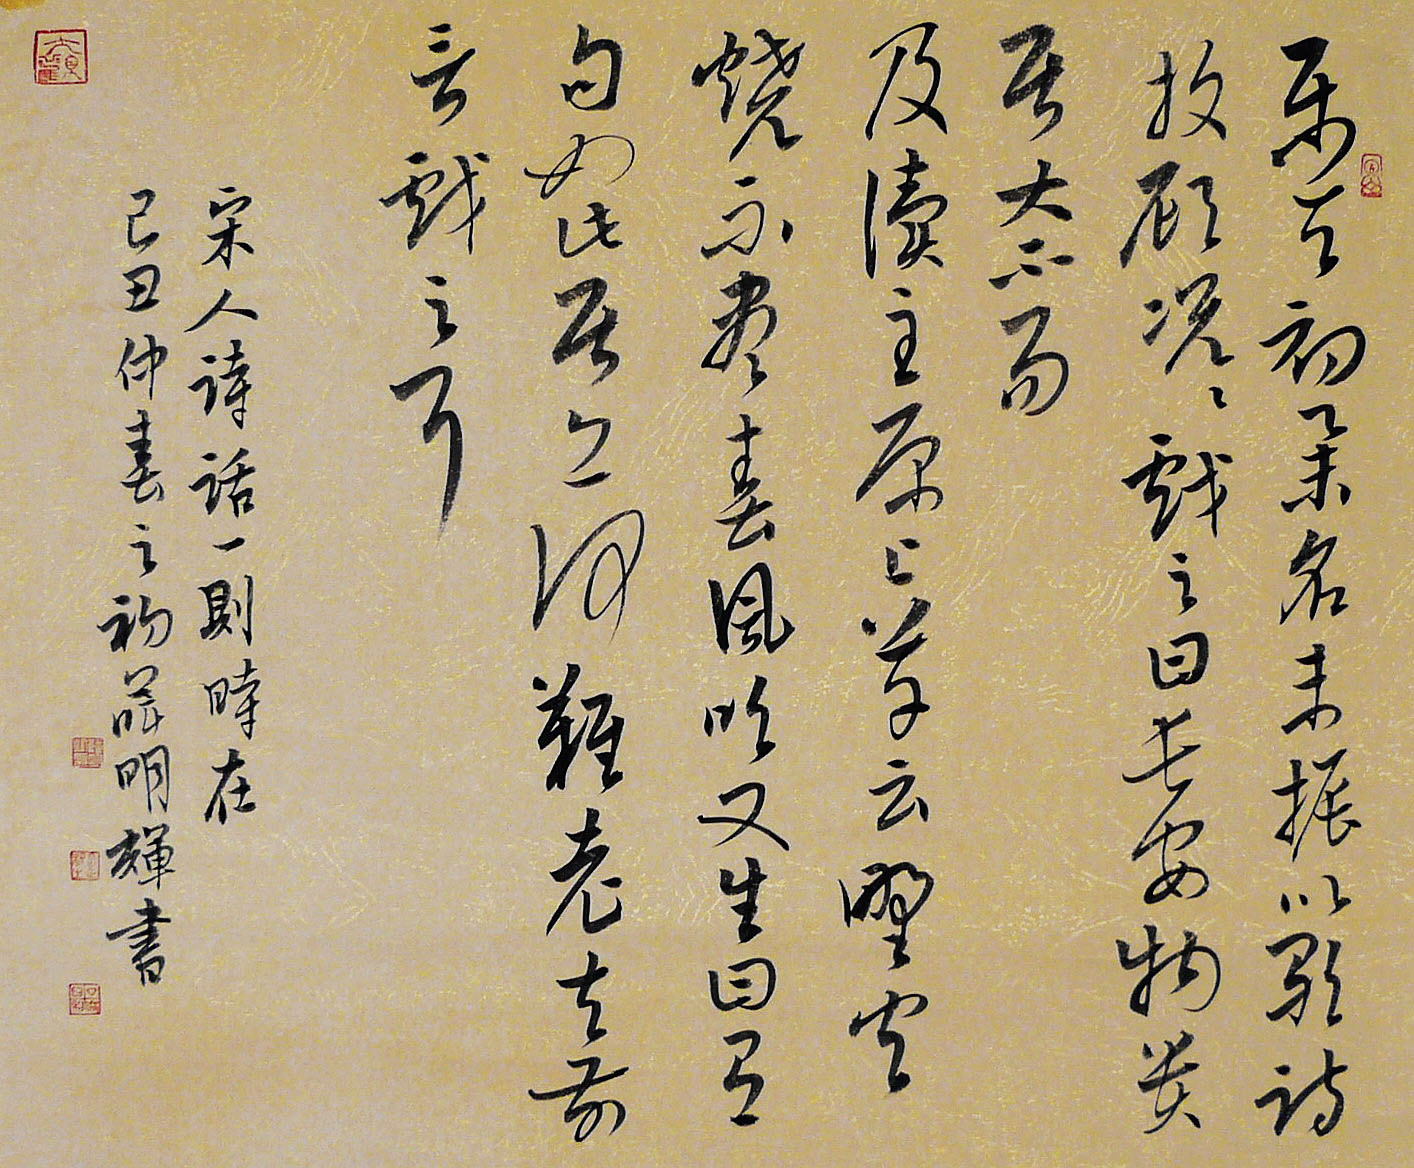 樂天初舉名未振以歌詩
投顧况〻戲之曰長安物貴
居大不易
及讀至原上草云野火
燒不盡春風吹又生曰有
句如此居亦何難老夫前
言戲之耳
宋人詩話一則時在
己丑仲春之初明輝書